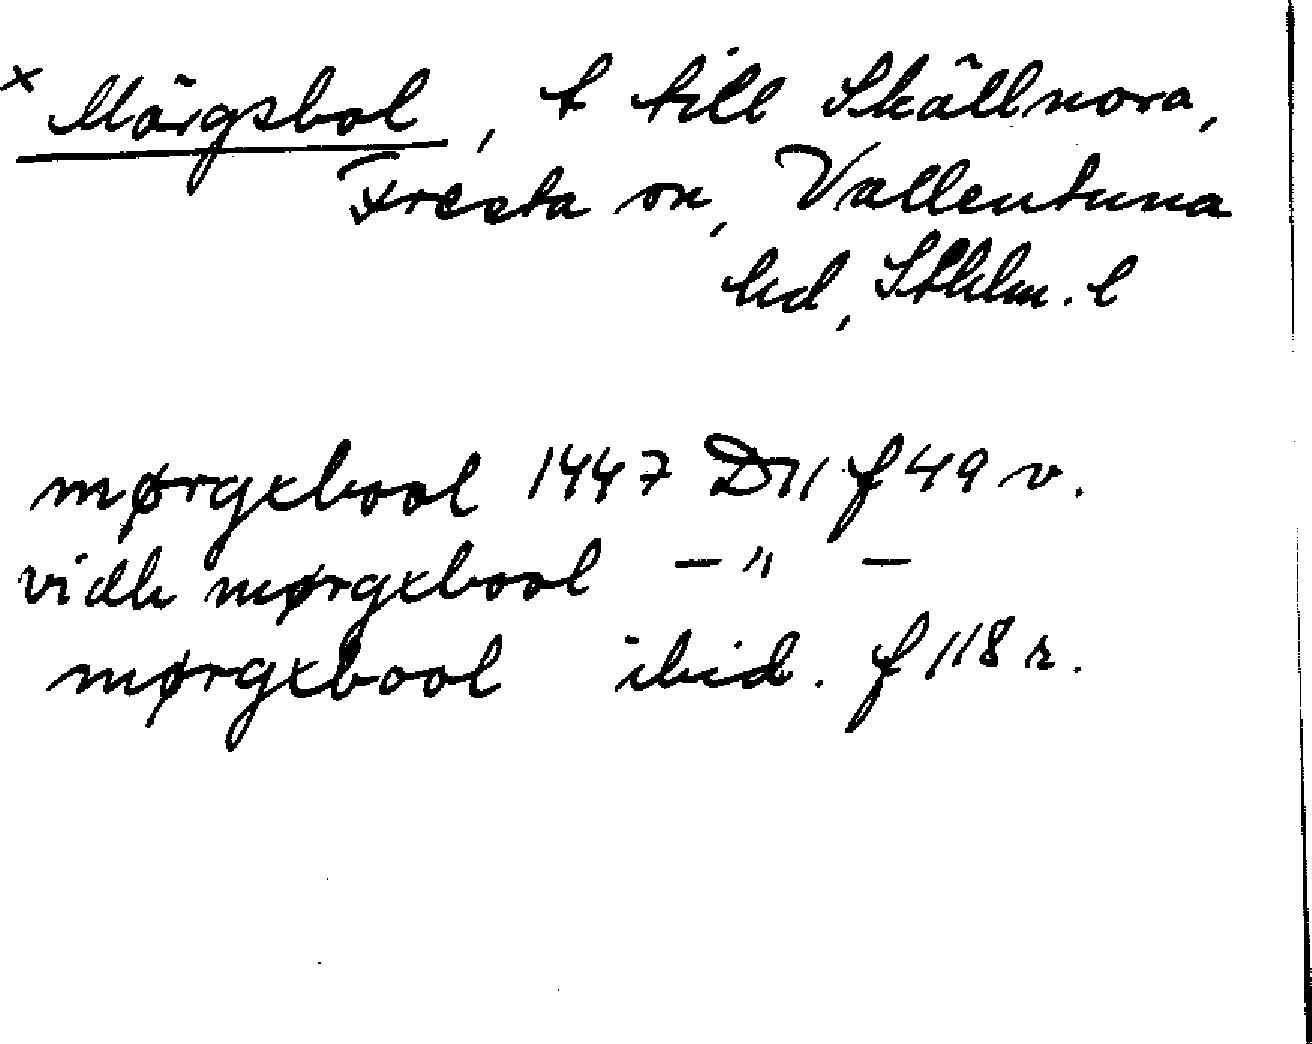 × Mörgsbol, t till Skällnora,
Fresta sn, Vallentuna
hd, Sthlm. l
mørgxbool 1447 D11 f 49 v.
vidh mørgxbool – " –
mørgxbool ibid. f 118 r.